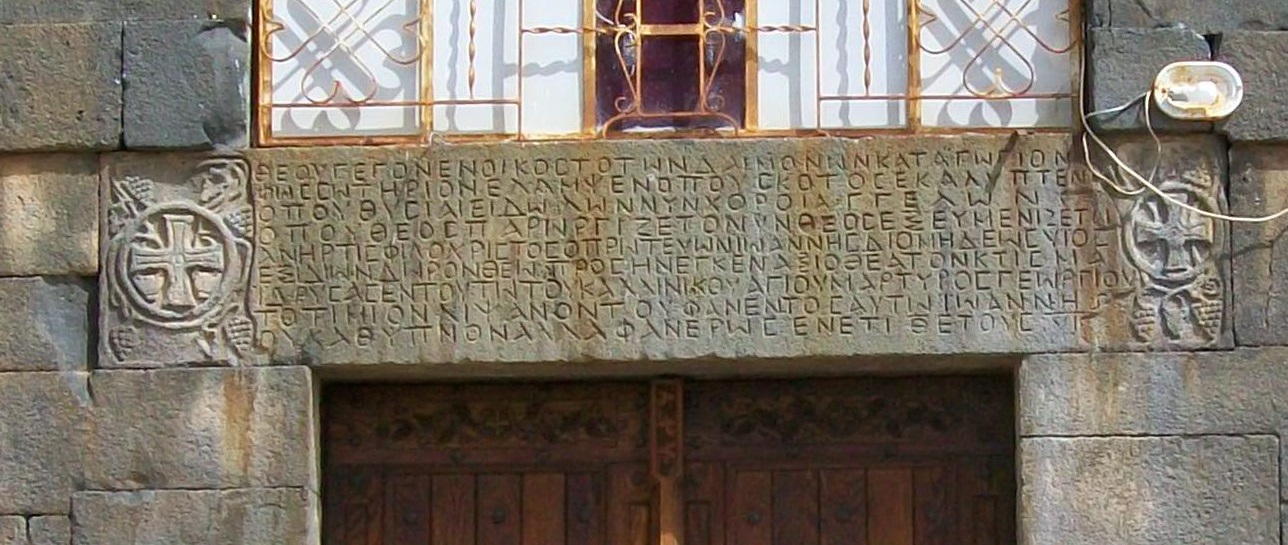 ΘΕΟΥΓΕΓΟΝΕΝΟΙΚΟСΤΟΤωΝΔΑΙΜΟΝωΝΚΑΤΑΓωΓΙΟΝ
ΦωССωΤΗΡΙΟΝΕΛΑΜΨΕΝΟΠΟΥСΚΟΤΟСΕΚΑΛΥΠΤΕΝ
ΟΠΟΥΘΥСΙΑΙΕΙΔωΛωΝΝΥΝΧΟΡΟΙΑΓΓΕΛωΝ
ΟΠΟΥΘΕΟСΠΑΡωΡΓΙΖΕΤΟΝΥΝΘΕΟСΕΞΕΥΜΕΝΙΖΕΤΑΙ
ΑΝΗΡΤΙСΦΙΛΟΧΡΙСΤΟСΟΠΡωΤΕΥωΝΙωΑΝΝΗСΔΙΟΜΗΔΕωСΥΙΟС
ΕΞΙΔΙωΝΔωΡΟΝΘΕωΠΡΟСΗΝΕΓΚΕΝΑΞΙΟΘΕΑΤΟΝΚΤΙСΜΑ
ΙΔΡΥСΑСΕΝΤΟΥΤωΤΟΥΚΑΛΛΙΝΙΚΟΥΑΓΙΟΥΜΑΡΤΥΡΟСΓΕωΡΓΙΟΥ
ΤΟΤΙΜΙΟΝΛΙΨΑΝΟΝΤΟΥΦΑΝΕΝΤΟСΑΥΤωΙωΑΝΝΗ
ΟΥΚΑΘΥΠΝΟΝΑΛΛΑΦΑΝΕΡωСΕΝΕΤΙΘΕΤΟΥС